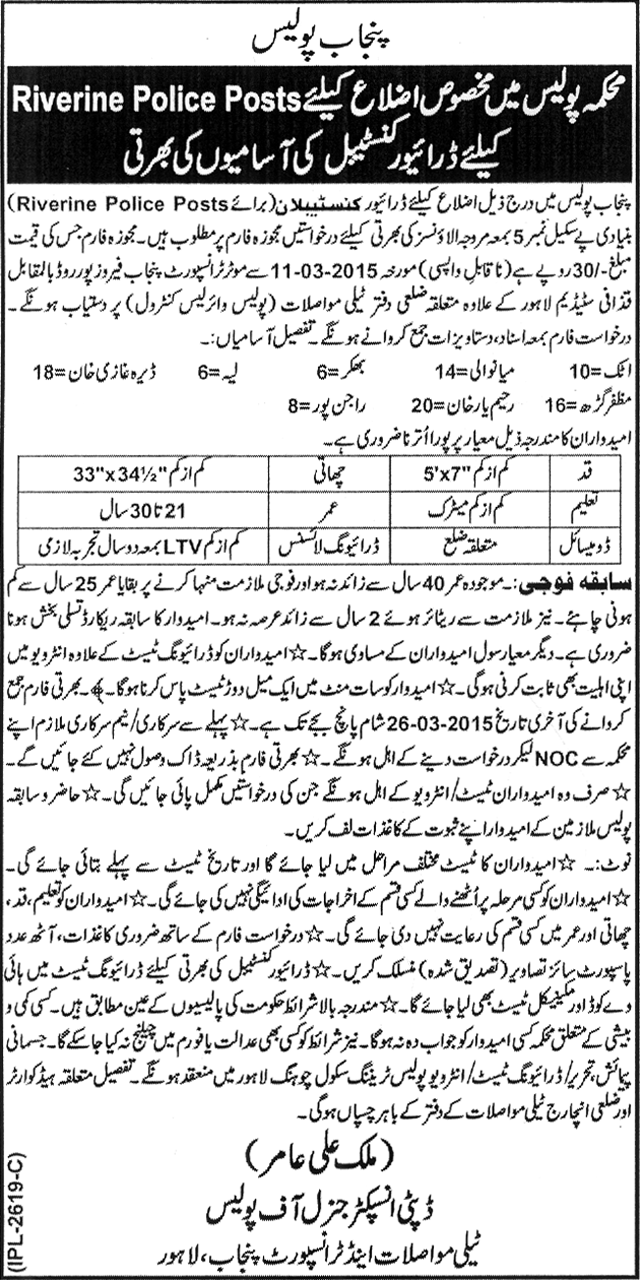 پنجاب پولیس
محکمہ پولیس میں مخصوص اضلاع کیلئے Riverine Police Posts
کیلئے ڈرائیور کنسٹیبل کی آسامیوں کی بھرتی
پنجاب پولیس میں درج ذیل اضلاع کیلئے ڈرائیور کنسٹیبلان (برائے Riverine Police Posts)
بنیادی پے سکیل نمبر 5 بمعہ مروجہ الاؤنسز کی بھرتی کیلئے درخواستیں مجوزہ فارم پر مطلوب ہیں۔ مجوزہ فارم جس کی قیمت
مبلغ -/30 روپے ہے (ناقابل واپسی) مورخہ 11-03-2015 سے موٹر ٹرانسپورٹ پنجاب فیروز پور روڈ بالمقابل
قذافی سٹیڈیم لاہور کے علاوہ متعلقہ ضلعی دفتر ٹیلی مواصلات (پولیس وائرلیس کنٹرول) پر دستیاب ہونگے۔
درخواست فارم بمعہ اسناد، دستاویزات جمع کروانے ہونگے۔ تفصیل آسامیاں:۔
اٹک=10 میانوالی=14 بھکر=6 لیہ=6 ڈیرہ غازی خان=18
مظفر گڑھ=16 رحیم یار خان=20 راجن پور=8
امیدواران کا مندرجہ ذیل معیار پر پورا اُترنا ضروری ہے۔
قد کم از کم "7x'5 چھاتی کم از کم "½34x"33
تعلیم کم از کم میٹرک عمر 21 تا 30 سال
ڈومیسائل متعلقہ ضلع ڈرائیونگ لائسنس کم از کم LTV بمعہ دو سال تجربہ لازمی
سابقہ فوجی:۔ موجودہ عمر 40 سال سے زائد نہ ہو اور فوجی ملازمت منہا کرنے پر بقایا عمر 25 سال سے کم
ہونی چاہئے۔ نیز ملازمت سے ریٹائر ہوئے 2 سال سے زائد عرصہ نہ ہو۔ امیدوار کا سابقہ ریکارڈ تسلی بخش ہونا
ضروری ہے۔ دیگر معیار سول امیدواران کے مساوی ہوگا۔ ☆ امیدواران کو ڈرائیونگ ٹیسٹ کے علاوہ انٹرویو میں
اپنی اہلیت بھی ثابت کرنی ہوگی۔ ☆ امیدوار کو سات منٹ میں ایک میل دوڑ ٹیسٹ پاس کرنا ہوگا۔ ☆۔ بھرتی فارم جمع
کروانے کی آخری تاریخ 26-03-2015 شام پانچ بجے تک ہے۔ ☆ پہلے سے سرکاری/نیم سرکاری ملازم اپنے
محکمہ سے NOC لیکر درخواست دینے کے اہل ہونگے۔ ☆ بھرتی فارم بذریعہ ڈاک وصول نہیں کئے جائیں گے۔
☆ صرف وہ امیدواران ٹیسٹ/انٹرویو کے اہل ہونگے جن کی درخواستیں مکمل پائی جائیں گی۔ ☆ حاضر و سابقہ
پولیس ملازمین کے امیدوار اپنے ثبوت کے کاغذات لف کریں۔
نوٹ:۔ ☆ امیدواران کا ٹیسٹ مختلف مراحل میں لیا جائے گا اور تاریخ ٹیسٹ سے پہلے بتائی جائے گی۔
☆ امیدواران کو کسی مرحلہ پر اُٹھنے والے کسی قسم کے اخراجات کی ادائیگی نہیں کی جائے گی۔ ☆ امیدواران کو تعلیم، قد،
چھاتی اور عمر میں کسی قسم کی رعایت نہیں دی جائے گی۔ ☆ درخواست فارم کے ساتھ ضروری کاغذات، آٹھ عدد
پاسپورٹ سائز تصاویر (تصدیق شدہ) منسلک کریں۔ ☆ ڈرائیور کنسٹیبل کی بھرتی کیلئے ڈرائیونگ ٹیسٹ میں ہائی
وے کوڈ اور مکینیکل ٹیسٹ بھی لیا جائے گا۔ ☆ مندرجہ بالا شرائط حکومت کی پالیسیوں کے عین مطابق ہیں۔ کسی کمی و
بیشی کے متعلق محکمہ کسی امیدوار کو جواب دہ نہ ہوگا۔ نیز شرائط کو کسی بھی عدالت یا فورم میں چیلنج نہ کیا جاسکے گا۔ جسمانی
پیمائش، تحریر/ڈرائیونگ ٹیسٹ/انٹرویو پولیس ٹریننگ سکول چوہنگ لاہور میں منعقد ہونگے۔ تفصیل متعلقہ ہیڈکوارٹر
اور ضلعی انچارج ٹیلی مواصلات کے دفتر کے باہر چسپاں ہوگی۔
(ملک علی عامر)
ڈپٹی انسپکٹر جنرل آف پولیس
ٹیلی مواصلات اینڈ ٹرانسپورٹ پنجاب، لاہور
(IPL-2619-C)